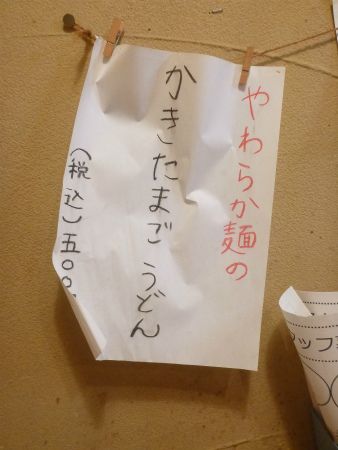 やわらか麺の
かきたまごうどん
(税込)五〇〇
ップ